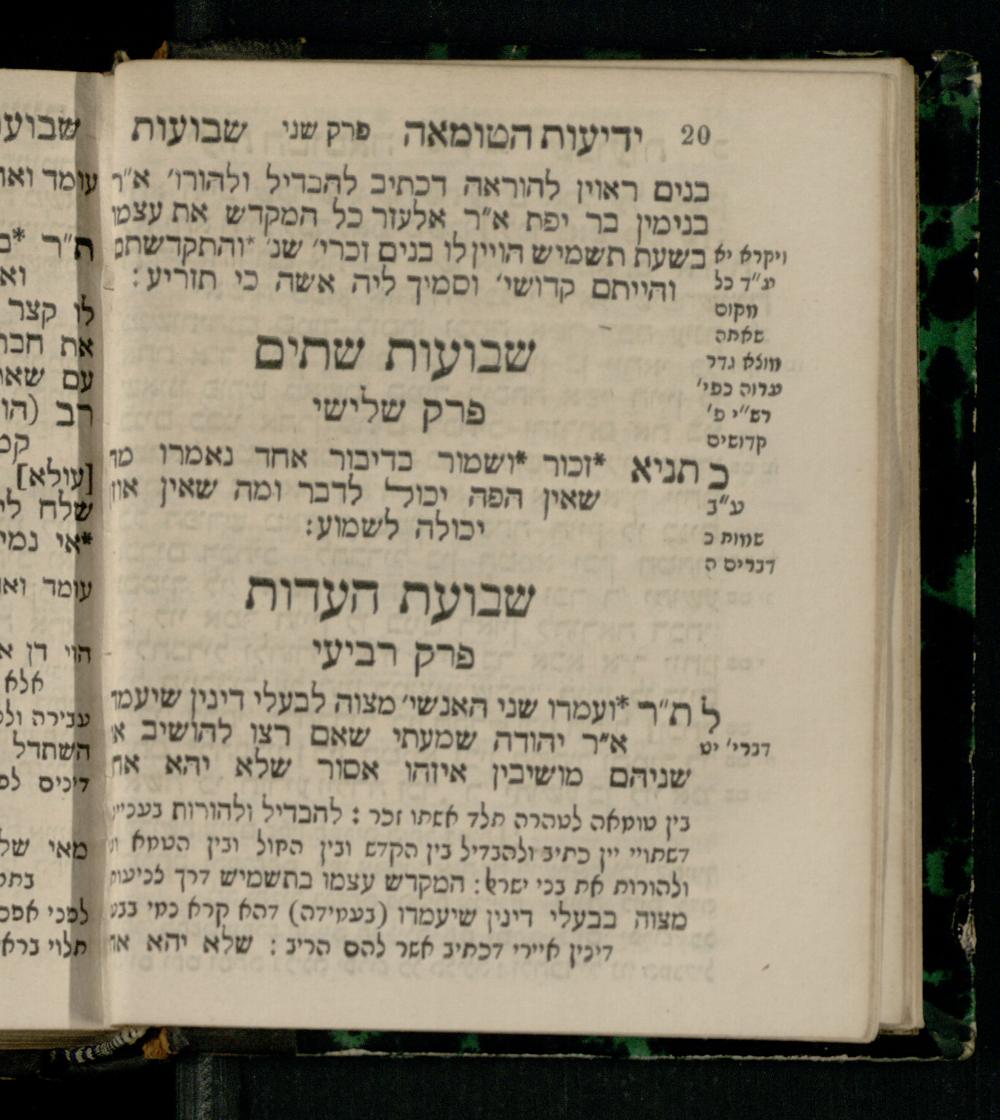 20 ידיעות הטומאה פרק שני שבועות
בנים ראוין להוראה דכתיב להבדיל ולהורו׳ א״ר
בנימין בר יפת א״ר אלעזר כל המקדש את עצמו
בשעת תשמיש הויין לו בנים זכרי׳ שנ׳ *והתקדשתם
והייתם קדושי׳ וסמיך ליה אשה כי תזריע :
ויקרא יא
ע״ד כל
מקום
שאתה
מולא גדר
ערוה כפי׳
רש״י פ׳
קדושים
שבועות שתים
פרק שלישי
כ תניא *זכור *ושמור בדיבור אחד נאמרו מה
שאין הפה יכול לדבר ומה שאין אוזן
יכולה לשמוע:
ע״ב
שמות כ
דברים ה
שבועת העדות
פרק רביעי
ל ת״ר *ועמדו שני האנשי׳ מצוה לבעלי דינין שיעמדו
א״ר יהודה שמעתי שאם רצו להושיב א
שניהם מושיבין איזהו אסור שלא יהא אח
דברי׳ יט
בין טומאה לטהרה תלד אשתו זכר : להבדיל ולהורות בענין
דשתויי יין כתיב ולהבדיל בין הקדש ובין החול ובין הטמא ו
ולהורות את בני ישראל: המקדש עצמו בתשמיש דרך לניעות
מצוה בבעלי דינין שיעמדו (בעמידה) דהא קרא כתי בבע
דינין איירי דכתיב אשר להם הריב : שלא יהא אח
שבוע
עומד ואו
ת״ר *ב
וא
לו קצר
את חבר
עם שאו
רב (הו
קמ
[עולא]
שלח לי
*אי נמי
עומד ואו
הוי דן א
אלא
עבירה ול
השתדל
דינים לפ
מאי של
בתל
לפני אפכ
תלוי ברא